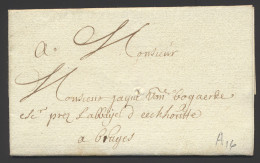 a Monsieur
Monsieur jaque van Bogaerde
etc prez Labbaye d'eeckhoutte
a bruges
A 16